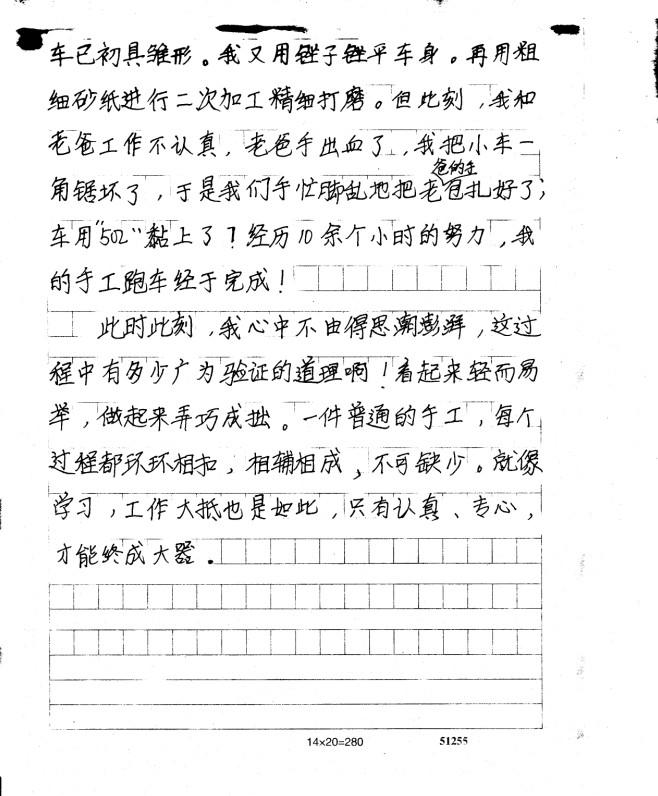 车已初具雏形。我又用锉子锉平车身。再用粗
细砂纸进行二次加工精细打磨。但此刻，我和
老爸工作不认真，老爸手出血了，我把小车一
爸的手
角锯坏了，于是我们手忙脚乱地把老爸扎好了；
车用"502"黏上了！经历10余个小时的努力，我
的手工跑车经于完成！
此时此刻，我心中不由得思潮澎湃，这过
程中有多少广为验证的道理啊！看起来轻而易
举，做起来弄巧成拙。一件普通的手工，每个
过程都环环相扣，相辅相成，不可缺少。就像
学习，工作大抵也是如此，只有认真、专心，
才能终成大器。
14×20=280 51255